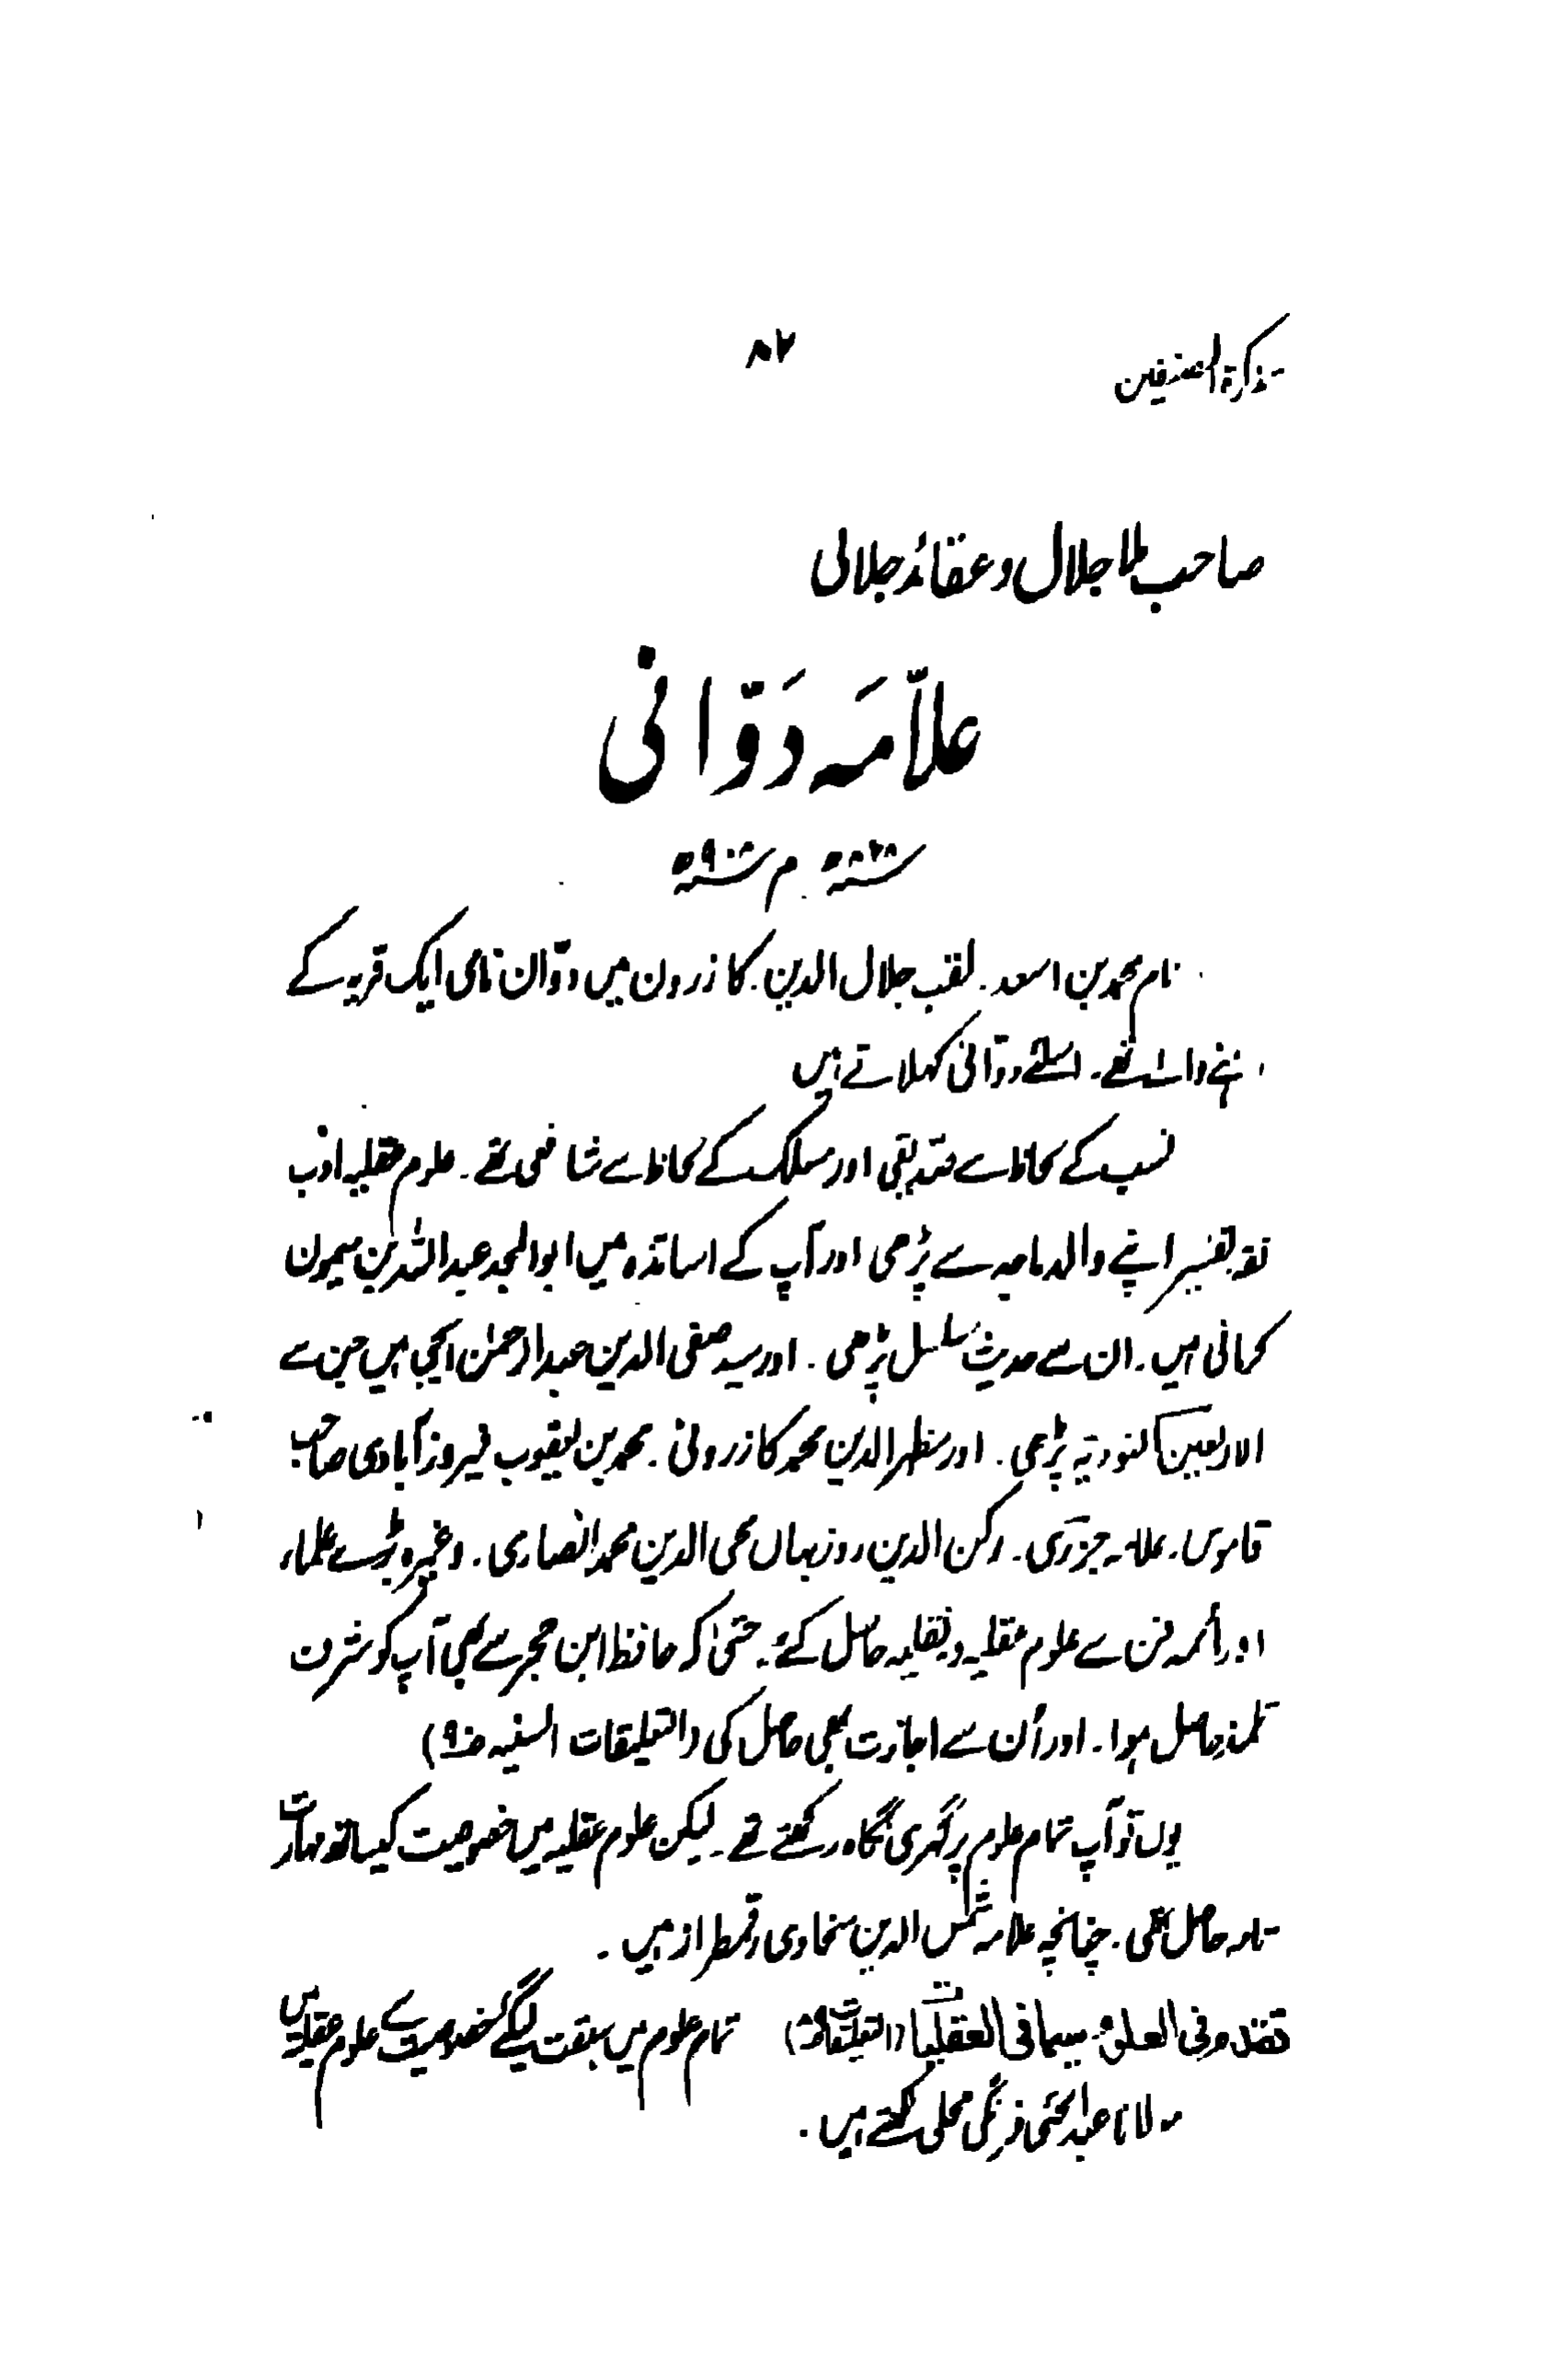 تذکرۃ المصنفین
۸۷
صاحب ملا جلال و عقائد جلالی
علّامَہ دَوّانی
م ۹۰۰ھ
نام محمد بن اسعد۔ لقب جلال الدین۔ کازرون میں دوّان نامی ایک قریہ کے
رہنے والے تھے۔ اسلئے دوّانی کہلاتے ہیں
نسب کے لحاظ سے صدیقی اور مسلک کے لحاظ سے شافعی تھے۔ علوم عقلیہ ادب
فقہ تفسیر اپنے والد ماجد سے پڑھی اور آپ کے اساتذہ میں ابوالمجد عبداللہ بن میمون
کرمانی ہیں۔ ان سے حدیث مسلسل پڑھی۔ اور سید صفی الدین عبدالرحمٰن ایجی ہیں جن سے
الاربعین النوویہ پڑھی۔ اور مظہر الدین محمد کازرونی۔ محمد بن یعقوب فیروزآبادی صاحب
قاموس۔ علامہ جزری۔ رکن الدین روزبہاں محی الدین محمد انصاری۔ وغیرہ بڑے علماء
اور ائمہ فن سے علوم عقلیہ و نقلیہ حاصل کئے۔ حتیٰ کہ حافظ ابن حجر سے بھی آپ کو شرف
تلمذ حاصل ہوا۔ اور اُن سے اجازت بھی حاصل کی (التعلیقات السنیہ ص۹)
یوں تو آپ تمام علوم پر گہری نگاہ رکھتے تھے۔ لیکن علوم عقلیہ میں خصوصیت کیساتھ مہارت
تامہ حاصل تھی۔ چنانچہ علامہ شمس الدین سخاوی رقمطراز ہیں۔
تقدم فی العلوم سیما فی العقلیات (التعلیقات) تمام علوم میں سبقت لیگئے خصوصیت سے علوم عقلیہ میں
مولانا عبدالحئی فرنگی محلی لکھتے ہیں۔